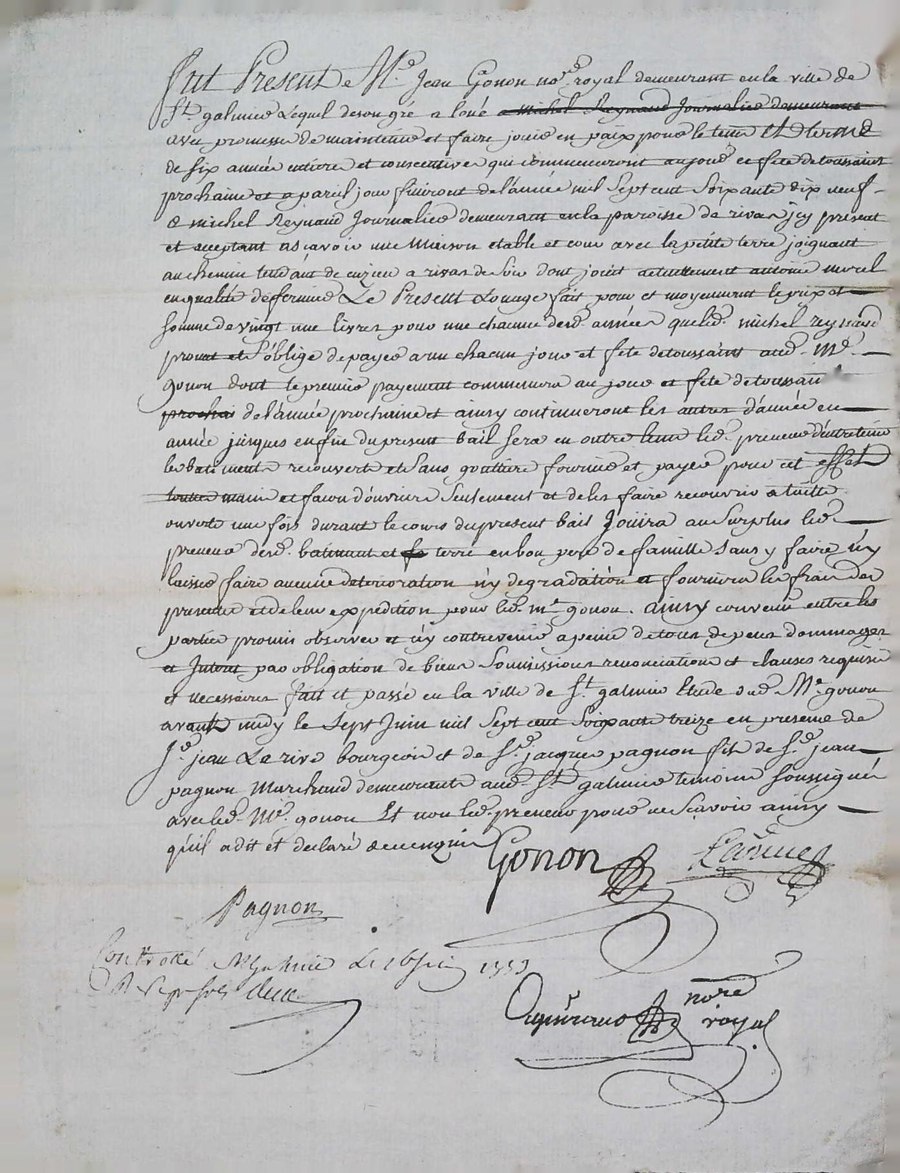 Fut Present Me. Jean Gonon nore. royal demeurant en la ville de
St. galmier Lequel de son gré a loué a michel Reynaud Journalier demeurant
avec promesse de maintenir et faire jouir en paix pour le tems et terme
de six année entiere et consecutive qui commenceront au jour et fete de toussaint
prochaine et a pareil jour finiront de l'année mil sept cent soixante dix neuf
a michel Reynaud Journalier demeurant en la paroisse de rivas icy present
et aceptant asçavoir une Maison etable et cour avec la petite terre joignant
au chemin tendant de cuzieu a rivas de soir dont jouit actuellement antoine morel
en qualité de fermier Le Present Louage fait pour et moyennant le prix et
somme de vingt une livres pour une chacune desd. années que led. michel reynaud
promet et s'oblige de payer a un chacun jour et fete de toussaint aud. Me.
gonon dont le premier payement commencera au jour et fete de toussaint
prochai de l'année prochaine et ainsy continueront les autres d'année en
année jusques en fin du present bail sera en outre tenu led. preneur d'entretenir
les batiments recouverts et sans gouttiere fournir et payer pour cet effet
toutes main et facon d'ouvriers seulement et de les faire recouvrir a tuille
ouverte une fois durant le cours du present bail Jouira au surplus led.
preneur desd. batiment et terre en bon pere de famille sans y faire n'y
laisser faire aucune deterioration n'y degradation et fournira les frais des
presente et de leur expedition pour led. me. gonon. ainsy convenu entre les
partie promis observer et n'y contrevenir a peine de tous depens dommages
et Interet par obligation de biens soumissions renonciations et clauses requises
et necessaires fait et passé en la ville de St. galmier Etude dud. Me. gonon
avant midy le sept Juin mil sept cent soixante treize en presence de
Sr. jean Larive bourgeois et de Sr. jacques pagnon fils de Sr. jean
pagnon Marchand demeurants aud. St. galmier temoins soussignés
avec led. Me. gonon Et non led. preneur pour ne sçavoir ainsy
qu'il a dit et declaré de ce enquis
Gonon Larive
Pagnon
Controllé a St galmier Le 16 juin 1773
nore
royal